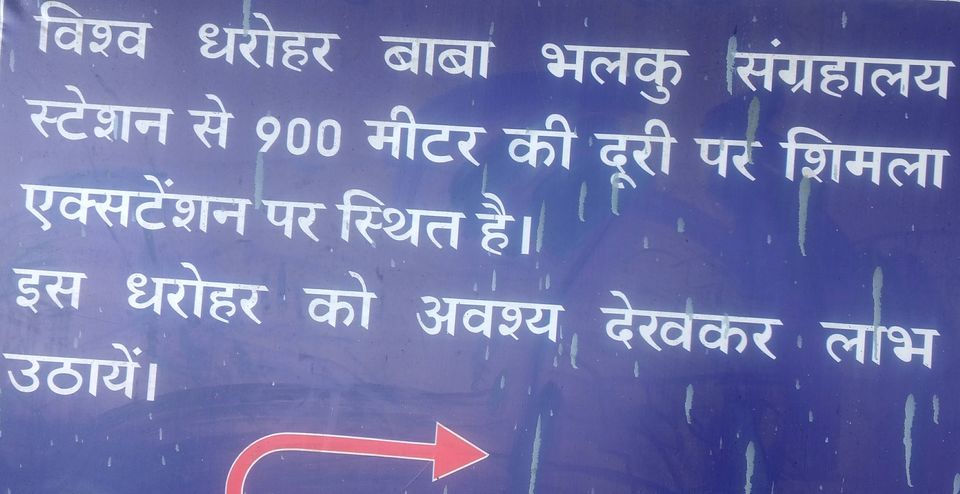 विश्व धरोहर बाबा भलकु संग्रहालय
स्टेशन से ९00 मीटर की दूरी पर शिमला
एक्सटेंशन पर स्थित है।
इस धरोहर को अवश्य देखकर लाभ
उठायें।